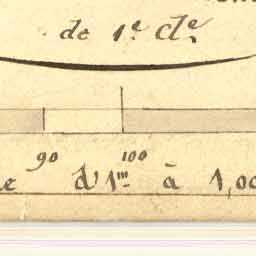 de 1.e cl.e
90 100
d'1m à 1,00